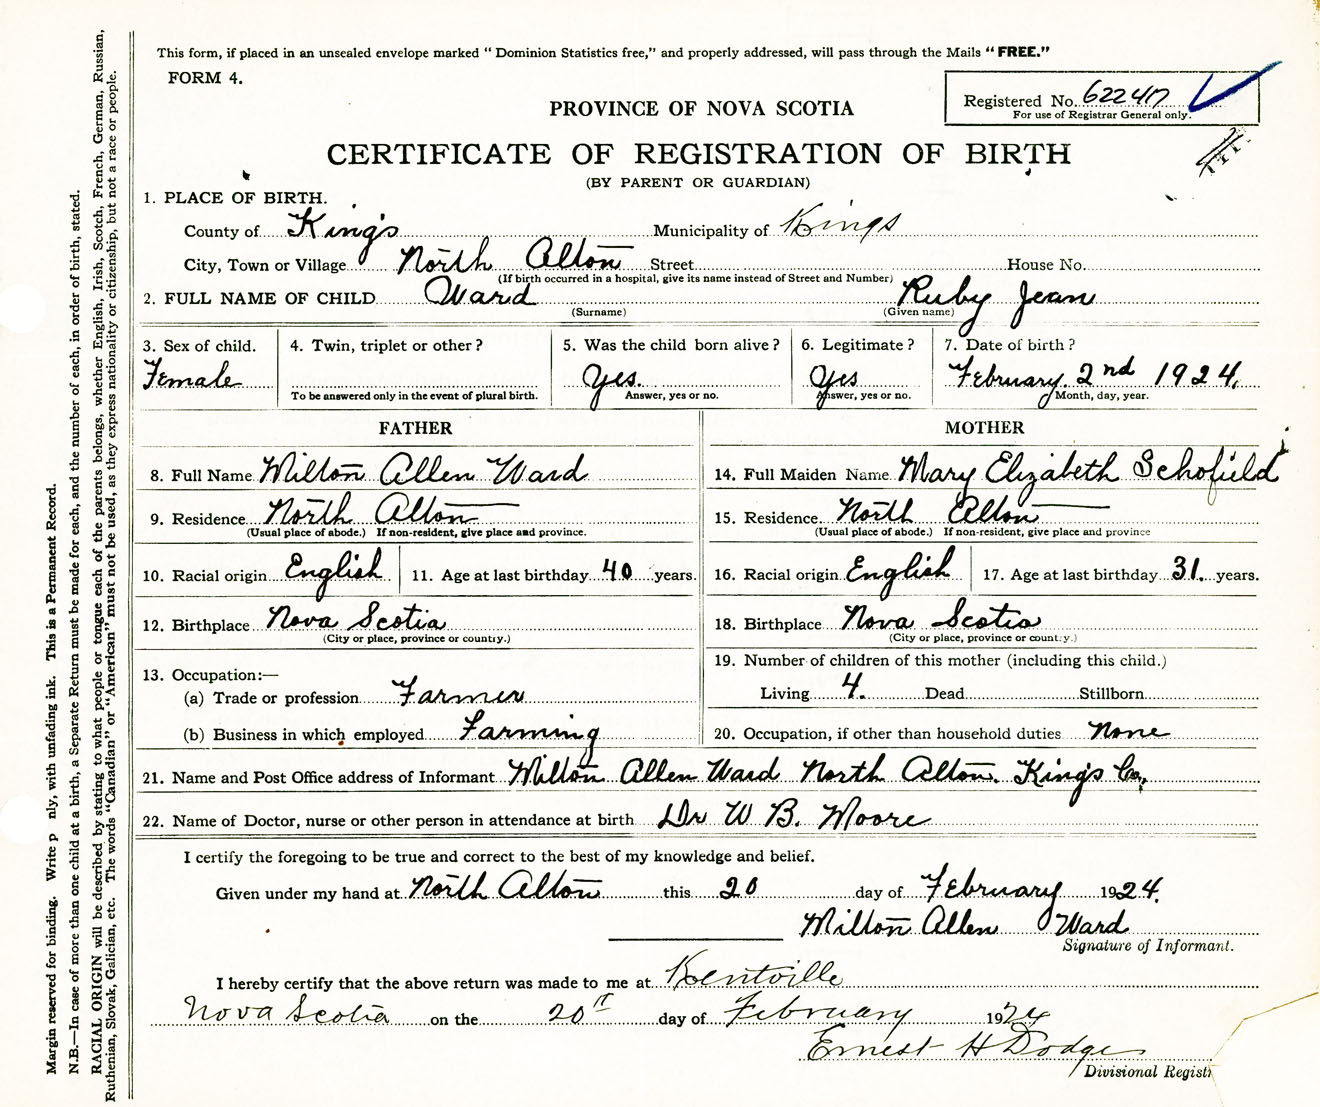 This form, if placed in an unsealed envelope marked " Dominion Statistics free," and properly addressed, will pass through the Mails " FREE."
FORM 4.
Registered No. 622417
For use of Registrar General only.
PROVINCE OF NOVA SCOTIA
CERTIFICATE OF REGISTRATION OF BIRTH
(BY PARENT OR GUARDIAN)
1. PLACE OF BIRTH.
County of King's Municipality of Kings
City, Town or Village North Alton Street House No.
(If birth occurred in a hospital, give its name instead of Street and Number)
2. FULL NAME OF CHILD Ward Ruby Jean
(Surname) (Given name)
3. Sex of child. 4. Twin, triplet or other? 5. Was the child born alive? 6. Legitimate? 7. Date of birth?
Female Yes. Yes February 2nd 1924.
To be answered only in the event of plural birth. Answer, yes or no. Answer, yes or no. Month, day, year.
FATHER MOTHER
8. Full Name Milton Allen Ward 14. Full Maiden Name Mary Elizabeth Schofield
9. Residence North Alton 15. Residence North Alton
(Usual place of abode.) If non-resident, give place and province. (Usual place of abode.) If non-resident, give place and province
10. Racial origin English 11. Age at last birthday 40 years. 16. Racial origin English 17. Age at last birthday 31. years.
12. Birthplace Nova Scotia 18. Birthplace Nova Scotia
(City or place, province or country.) (City or place, province or country.)
13. Occupation:— 19. Number of children of this mother (including this child.)
(a) Trade or profession Farmer Living 4. Dead Stillborn
(b) Business in which employed Farming 20. Occupation, if other than household duties None
21. Name and Post Office address of Informant Milton Allen Ward North Alton. King's Co.,
22. Name of Doctor, nurse or other person in attendance at birth Dr W B. Moore
I certify the foregoing to be true and correct to the best of my knowledge and belief.
Given under my hand at North Alton this 20 day of February 1924.
Milton Allen Ward
Signature of Informant.
I hereby certify that the above return was made to me at Kentville
Nova Scotia on the 20th day of February 1924
Ernest H Dodge
Divisional Registr
Margin reserved for binding. Write p nly, with unfading ink. This is a Permanent Record.
N.B.—In case of more than one child at a birth, a Separate Return must be made for each, and the number of each, in order of birth, stated.
RACIAL ORIGIN will be described by stating to what people or tongue each of the parents belongs, whether English, Irish, Scotch, French, German, Russian,
Ruthenian, Slovak, Galician, etc. The words "Canadian" or "American" must not be used, as they express nationality or citizenship, but not a race or people.